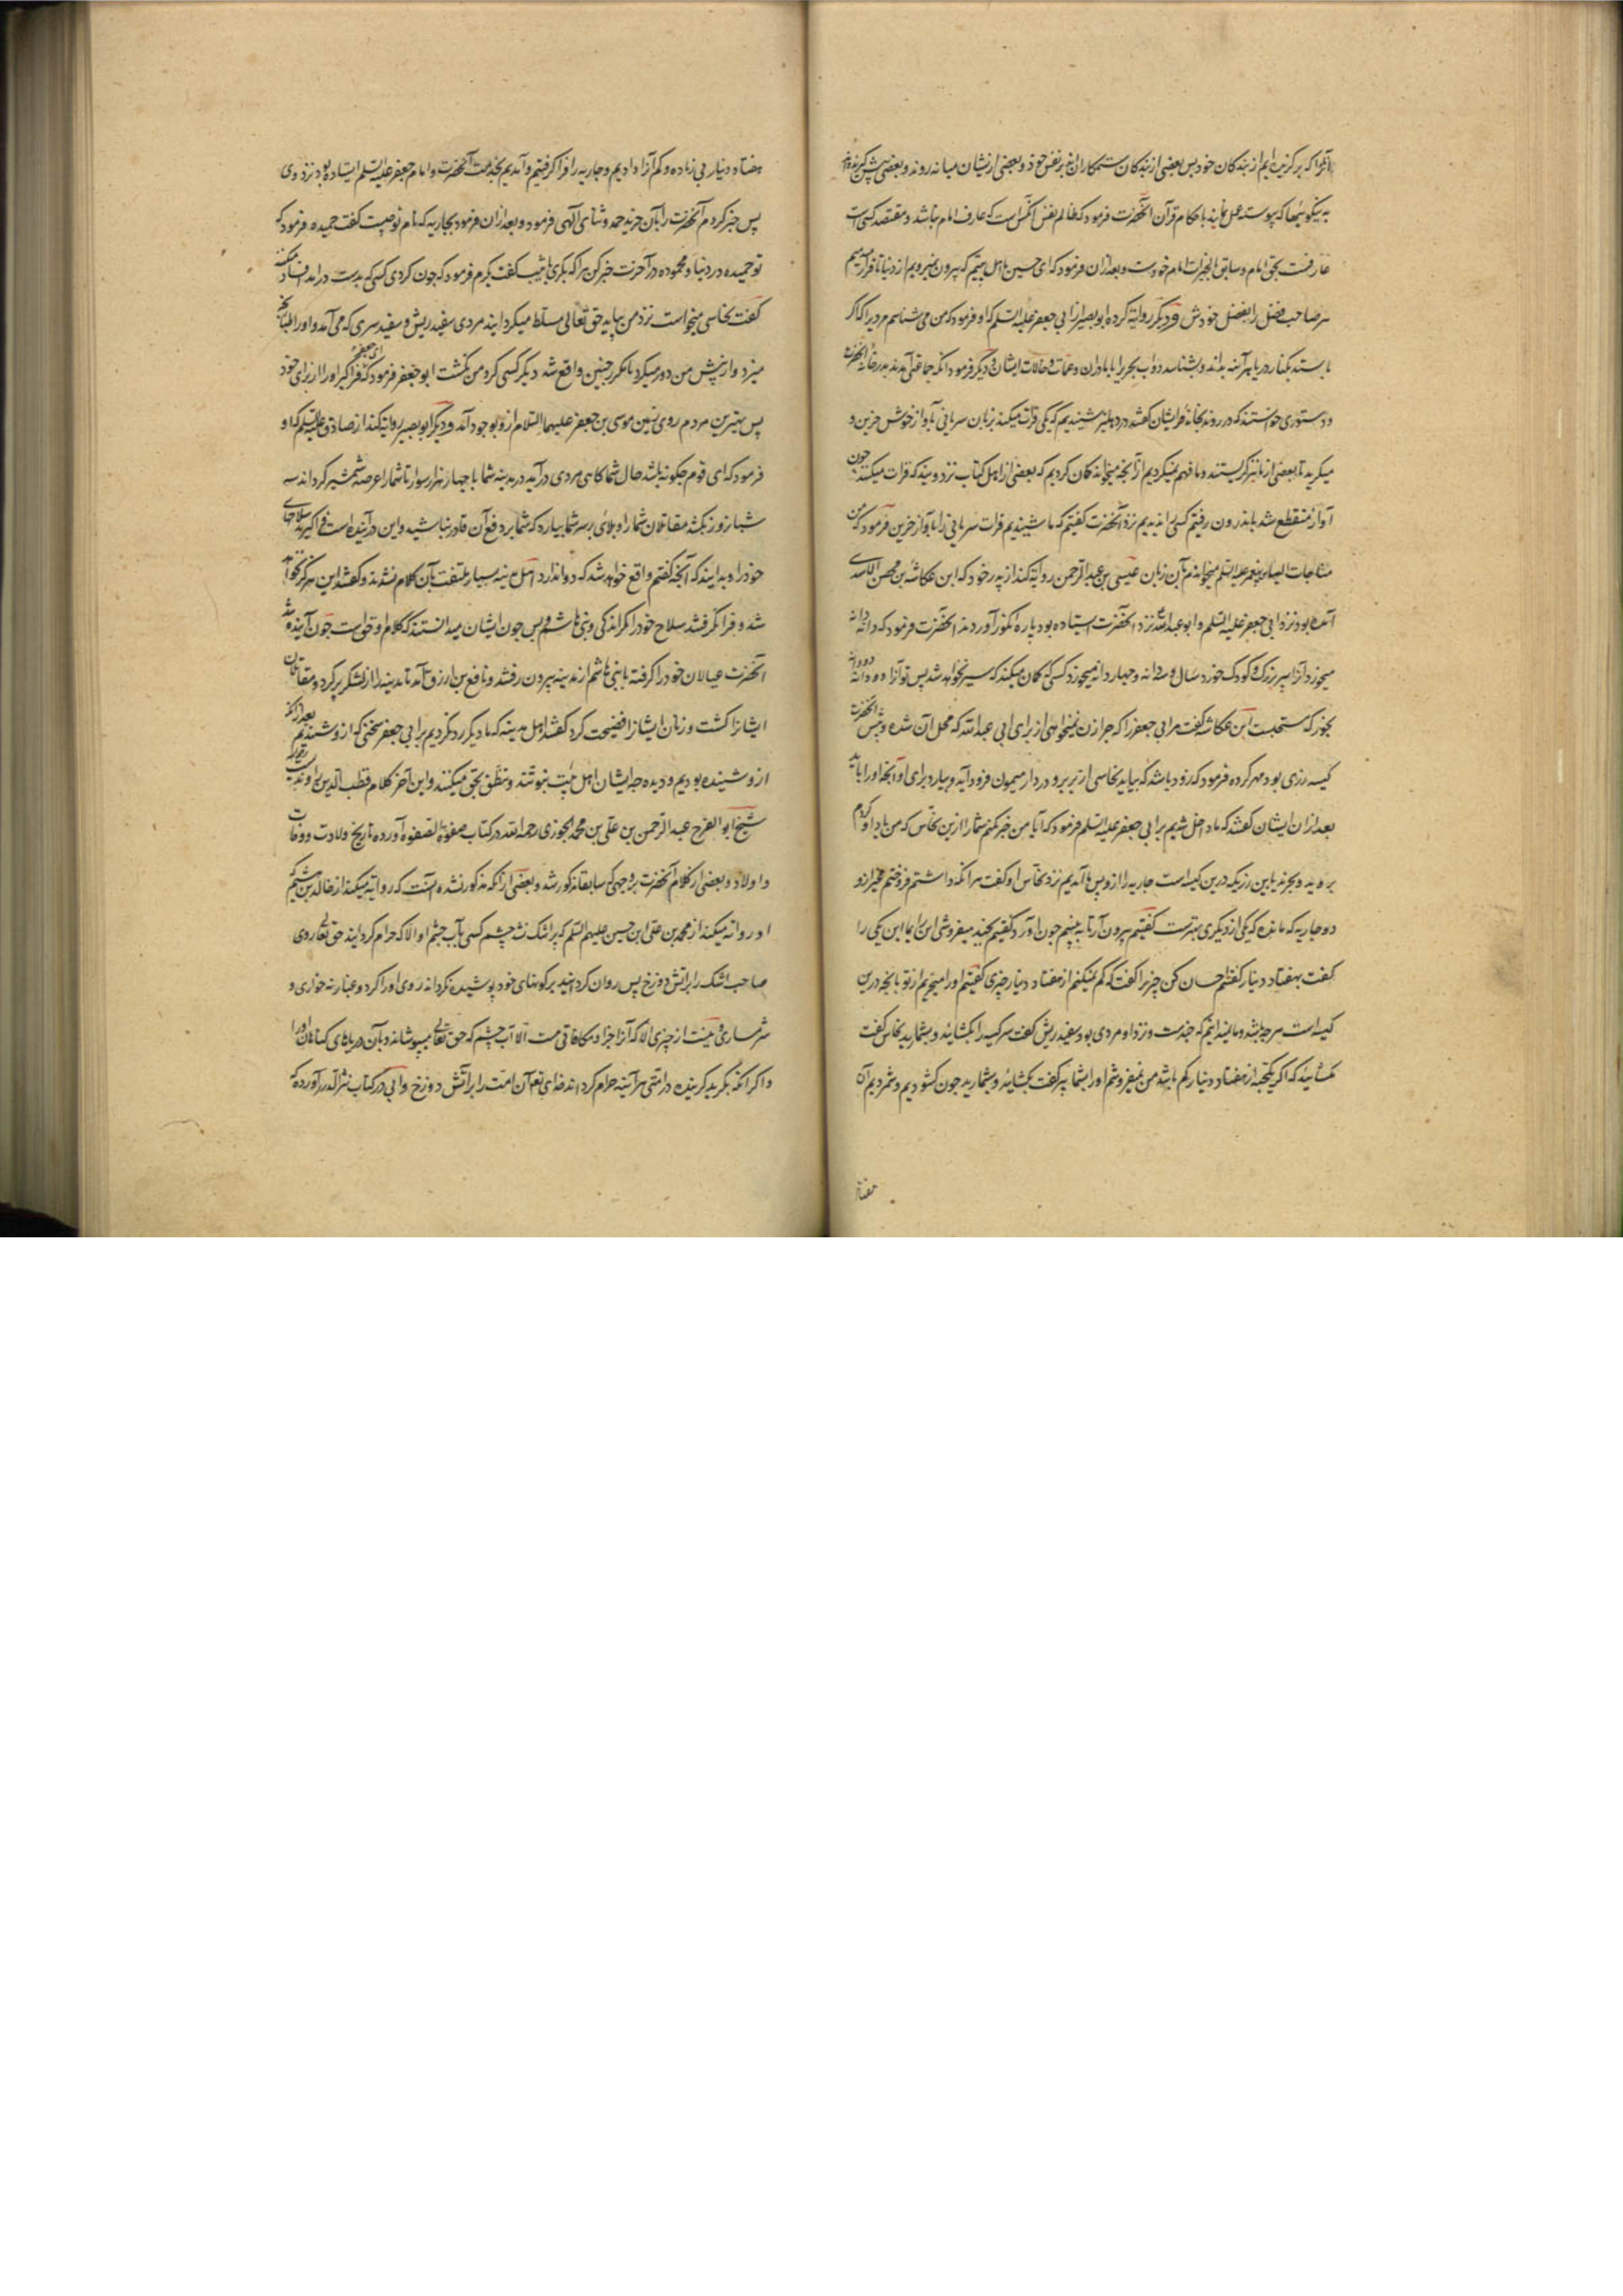 آنرا که برگزیده ایم از بندگان خود پس بعضی از بندگان ستمکارانند بر نفس خود و بعضی ازیشان میانه روند و بعضی پیش گیرنده
به نیکوئیها که پیوسته عمل نمایند باحکام قرآن آنحضرت فرمود که ظالم نفس آنکس است که عارف امام نباشد و مقتصد کسی است
عارفست بحق امام و سابق الخیرات امام خودست و بعد ازان فرمود که ای حسین ما اهل بیتیم که بیرون نمیرویم از دنیا تا اقرار
هر صاحب فضل را بفضل خودش و دیگر روایة کرده ابو بصیر از ابی جعفر علیه السلم که او فرمود که من می شناسم مردیرا که اگر
بایستد بکنار دریا هر آینه بداند و بشناسد دواب بحریرا با مادران و عمات و خالات ایشان و دیگر فرمود آنکه جماعتی آمدند بدر خانه آنحضرت
و دستوری خواستند که در روند بخانه ایشان گفتند در دهلیز شنیدیم که یکی قرات میکند بزبان سریانی بآواز خوش حزین و
میگرید تا بعضی از ما نیز گریستند و ما فهم نمیکردیم از آنچه میخواند گمان کردیم که بعضی از اهل کتاب نزد ویند که قرات میکند چون
آواز منقطع شد باندرون رفتیم کسی را ندیدیم نزد آنحضرت گفتیم که ما شنیدیم قرات سریانی را بآواز حزین فرمود که من
مناجات الیاس پیغمبر علیه السلم میخواندم بآن زبان عیسی بن عبد الرحمن روایة کند از پدر خود که ابن عکاشه بن محصن الاسدی
آمده بود نزد ابی جعفر علیه السلم و ابو عبد الله نزد آنحضرت ایستاده بود پاره انگور آوردند آنحضرت فرمود که دانه دانه
میخورد آنرا پیر بزرگ و کودک خورد سال و سه دانه و چهار دانه میخورد کسی که گمان میکند که سیر نخواهد شد پس تو آنرا دو دانه دو دانه
بخور که مستحبست ابن عکاشه گفت مر ابی جعفر را که چرا زن نمیخواهی از برای ابی عبد الله که محل آن شده و پیش آنحضرت
کیسه زری بود مهر کرده فرمود که زود باشد که بیاید نخاسی از بربر و در دار میمون فرود آید و بیارد برای او آنچه او را باید
بعد ازان ایشان گفتند که ما داخل شدیم بر ابی جعفر علیه السلم فرمود که آیا من خبر نکنم شما را ازین نخاس که من یاد او کردم
بروید و بخرید باین زر که درین کیسه است جاریه را ازو پس ما آمدیم نزد نخاس او گفت هر آنکه داشتم فروختم غیر از
دو جاریه که مانده که یکی از دیگری بهترست گفتیم بیرون آر تا به بینیم چون آورد گفتیم بچند میفروشی این یکی را
گفت بهفتاد دینار گفتیم احسان کن چیزیرا گفت که کم نمیکنم از هفتاد دینار چیزی گفتیم او را میخریم از تو بآنچه درین
کیسه است هر چه باشد و ما نمیدانیم که چندست و نزد او مردی بود سفید ریش گفت سر کیسه را بکشائید و بشمارید نخاس گفت
مکشائید که اگر یکحبه از هفتاد دینار کم باشد من نمیفروشم او را بشما پیر گفت بکشائید و بشمارید چون کشودیم و شمردیم آن
هفتاد
هفتاد دینار بی زیاده و کم آنرا دادیم و جاریه را فرا گرفتیم و آمدیم بخدمت آنحضرت و امام جعفر علیه السلم ایستاده بود نزد وی
پس خبر کردم آنحضرت را بآن خریده حمد و ثنای الهی فرمود و بعد ازان فرمود بجاریه که نام تو چیست گفت حمیده فرمود که
تو حمیده در دنیا و محموده در آخرت خبر کن مرا که بکری یا ثیب گفت بکرم فرمود که چون کردی کسی که بدست در آمد افساد میکند
گفت نخاسی میخواست نزد من بیاید حق تعالی مسلط میگردانید مردی سفید ریش و سفید سری که می آمد و او را طپانچه
میزد و از پیش من دور میکرد تا مکرر چنین واقع شد دیگر کسی گرد من نگشت ابو جعفر فرمود که ای جعفر فرا گیر او را از برای خود
پس بهترین مردم روی زمین موسی بن جعفر علیهما السلام ازو بوجود آمد و دیگر ابو بصیر روایة کند از صادق علیه السلم که او
فرمود که ای قوم چگونه باشد حال شما گاهی مردی در آید در مدینه شما با چهار هزار سوار تا شما را عرضه شمشیر گرداند سه
شبانروز بکشد مقاتلان شما را و بلائی بر سر شما بیارد که شما بر دفع آن قادر نباشید و این در آینده است فرا گیرید سلاحهای
خود را و بدانید که آنچه گفتم واقع خواهد شد که دوا ندارد اهل مدینه بسیار ملتفت بآن کلام نشدند و گفتند این هرگز نخواهد
شد و فرا نگرفتند سلاح خود را مگر اندکی و بنی هاشم و بس چون ایشان میدانستند که کلام او حق است چون آینده شد
آنحضرت عیالان خود را گرفته با بنی هاشم از مدینه بیرون رفتند و نافع بن ازرق آمد تا مدینه را از لشکر پر کرد و مقاتلان
ایشانرا کشت و زنان ایشانرا فضیحت کرد گفتند اهل مدینه که ما دیگر رد نکردیم بر ابی جعفر سخنی که ازو شنیدیم بعد از آنکه
ازو شنیده بودیم و دیده چه ایشان اهل بیت نبوتند و نطق بحق میکنند و این آخر کلام قطب الدین راوندیست
شیخ ابو الفرج عبد الرحمن بن علی بن محمد الجوزی رحمه الله در کتاب صفوة الصفوه آورده تاریخ ولادت و وفات
و اولاد و بعضی از کلام آنحضرت بوجهی که سابقا مذکور شد و بعضی از آنکه مذکور نشده اینست که روایة میکند از خالد بن هیثم
او روایة میکند از محمد بن علی ابن حسین علیهم السلم که پر اشک نشد چشم کسی بآب چشم او الا که حرام گردانید حق تعالی روی
صاحب اشک را بر آتش دوزخ پس روان گردانید بر گونهای خود پوشیده نگرداند روی او را گرد و غبار نه خواری و
شرمساری و نیست از چیزی الا که آنرا جزا و مکافاتی هست الا آب چشم که حق تعالی میپوشاند بآن دریاهای گناهان او را
و اگر آنکه بگرید گرینده در امتی هر آینه حرام گرداند خدای تعالی آن امت را بر آتش دوزخ و ابی در کتاب نثر الدرر آورده که